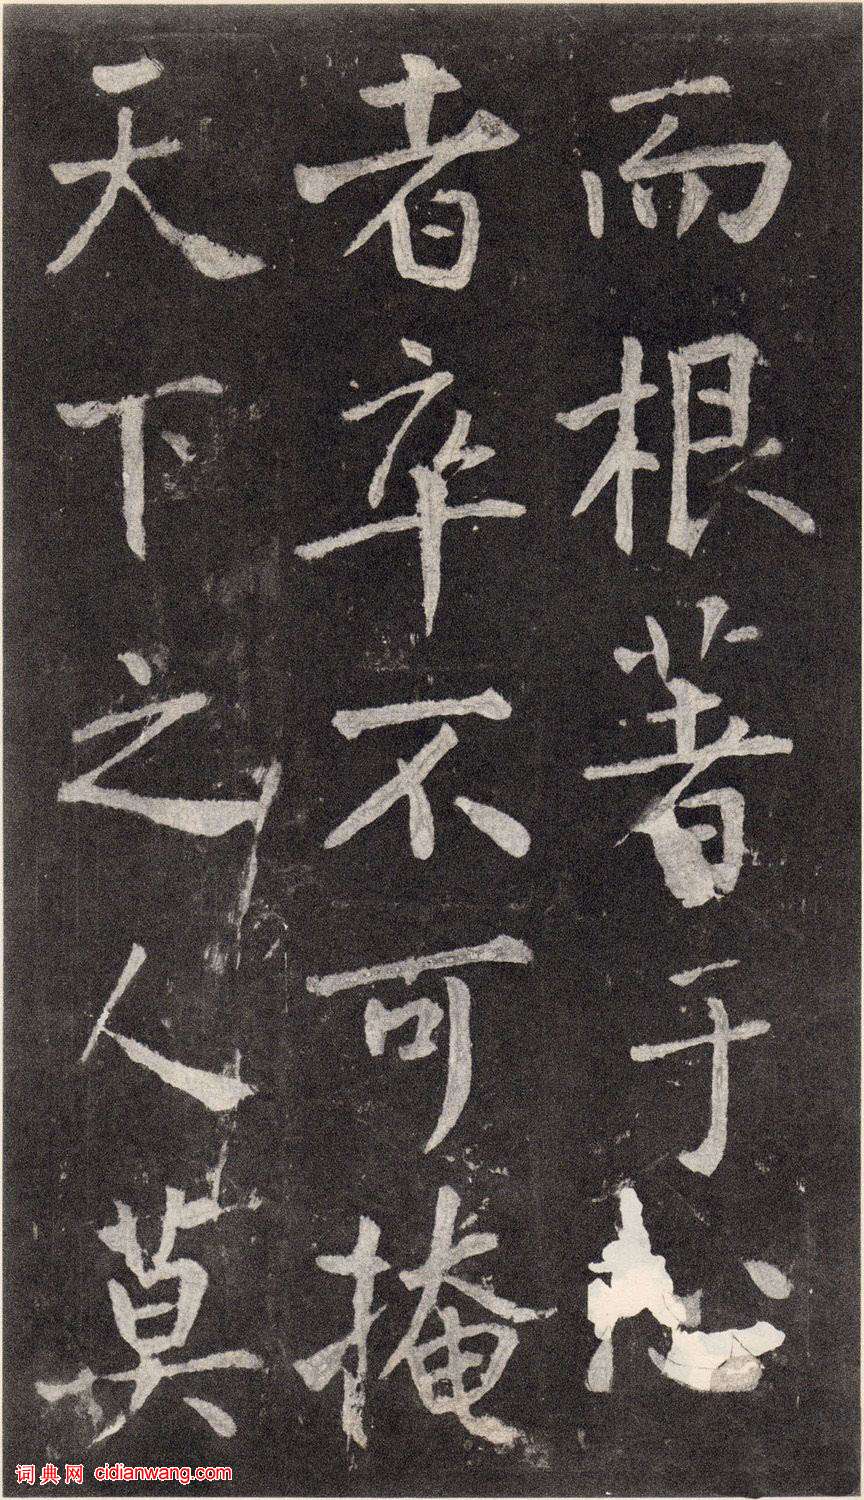 而根著于心
者卒不可掩
天下之人莫
词典网 cidianwang.com